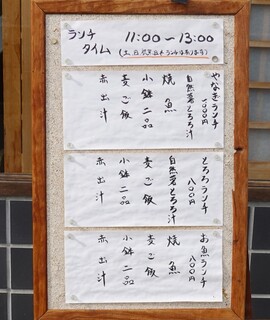 ランチ
タイム
11:00〜13:00
(土、日、祝祭日のランチは有りません)
やなぎランチ
1000円
自然薯とろろ汁
焼魚
小鉢二品
麦ご飯
赤出汁
とろろランチ
800円
自然薯とろろ汁
麦ご飯
小鉢二品
赤出汁
お魚ランチ
800円
焼魚
麦ご飯
小鉢二品
赤出汁